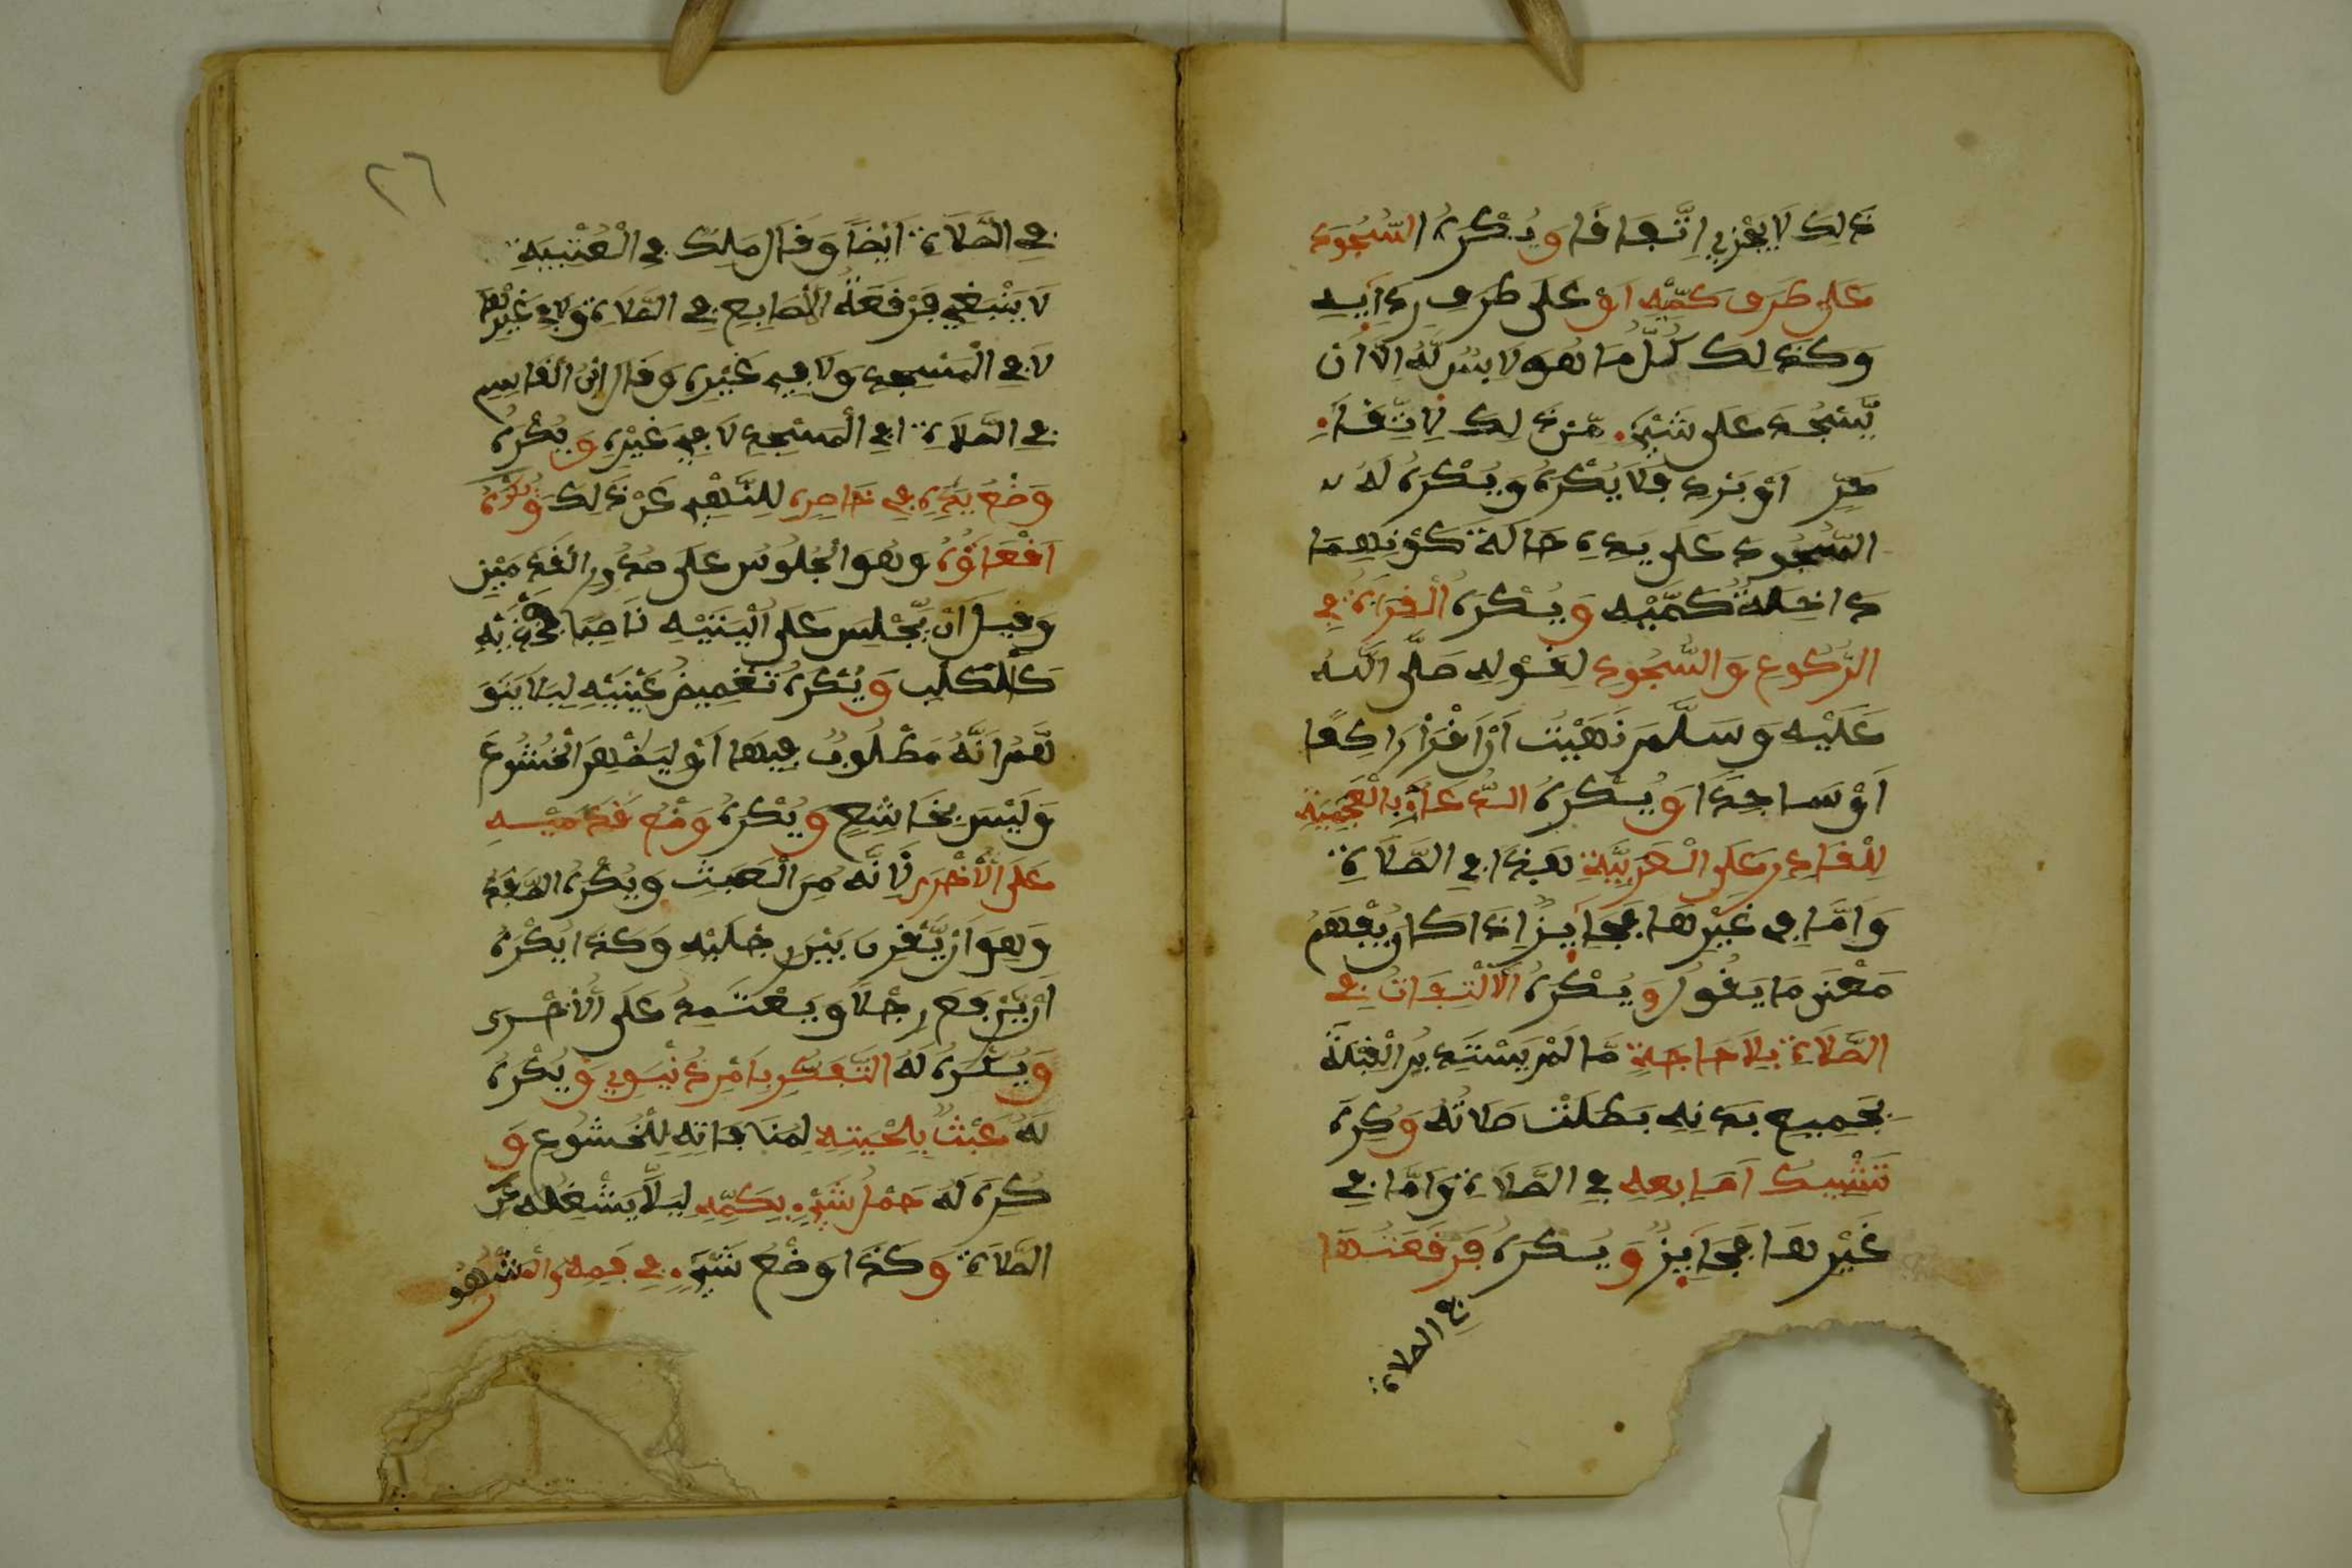 ذَلِكَ لَا يُجْزِي اِتِّفَاقًا وَيُكْرَهُ السُّجُودُ
عَلَى طَرَفِ كُمِّهِ اَوْ عَلَى طَرَفِ رِدَائِهِ
وَكَذَلِكَ كُلُّ مَا هُوَ لَابِسٌ لَهُ اِلَّا اَنْ
يَّسْجُدَ عَلَى شَيْءٍ مِّنْ ذَلِكَ لِاتِّقَاءِ
حَرٍّ اَوْ بَرْدٍ فَلَا يُكْرَهُ وَيُكْرَهُ لَهُ
السُّجُودُ عَلَى يَدَيْهِ حَالَةَ كَوْنِهِمَا
دَاخِلَةً كُمَّيْهِ وَيُكْرَهُ الْقِرَاءَةُ فِي
الرُّكُوعِ وَالسُّجُودِ لِقَوْلِهِ صَلَّى اللهُ
عَلَيْهِ وَسَلَّمَ نَهَيْتُ اَنْ اَقْرَأَ رَاكِعًا
اَوْ سَاجِدًا وَيُكْرَهُ الدُّعَاءُ بِالْعَجَمِيَّةِ
لِلْقَادِرِ عَلَى الْعَرَبِيَّةِ هَذَا فِي الصَّلَاةِ
وَاَمَّا فِي غَيْرِهَا فَجَائِزٌ اِذَا كَانَ يُفْهَمُ
مَعْنَى مَا يَقُولُ وَيُكْرَهُ الْاِلْتِفَاتُ فِي
الصَّلَاةِ بِلَا حَاجَةٍ مَّا لَمْ يَسْتَدْبِرِ الْقِبْلَةَ
بِجَمِيعِ بَدَنِهِ بَطَلَتْ صَلَاتُهُ وَكُرِهَ
تَشْبِيكُ اَصَابِعِهِ فِي الصَّلَاةِ وَاَمَّا فِي
غَيْرِهَا فَجَائِزٌ وَيُكْرَهُ فَرْقَعَتُهَا
فِي الصلاة
٢٦
فِي الصَّلَاةِ اَيْضًا وَقَالَ مَلِكٌ فِي الْعُتْبِيَّةِ
لَا يَنْبَغِي فَرْقَعَةُ الْاَصَابِعِ فِي الصَّلَاةِ وَلَا فِي غَيْرِهَا
لَا فِي الْمَسْجِدِ وَلَا فِي غَيْرِهِ وَقَالَ ابْنُ الْقَاسِمِ
فِي الصَّلَاةِ اَفِي الْمَسْجِدِ لَا فِي غَيْرِهِ وَيُكْرَهُ
وَضْعُ يَدِهِ فِي خَاصِرِهِ لِلنَّهْيِ عَنْ ذَلِكَ وَيُكْرَهُ
اَقْعَاؤُهُ وَهُوَ الْجُلُوسُ عَلَى صُدُورِ الْقَدَمَيْنِ
وَقِيلَ اَنْ يَّجْلِسَ عَلَى اَلْيَتَيْهِ نَاصِبًا فَخْذَيْهِ
كَالْكَلْبِ وَيُكْرَهُ تَغْمِيضُ عَيْنَيْهِ لِيَلَّا يَتَوَ
هَّمَ اَنَّهُ مَطْلُوبٌ فِيهَا اَوْ لِيُظْهِرَ الْخُشُوعَ
وَلَيْسَ بِخَاشِعٍ وَيُكْرَهُ وَضْعُ قَدَمَيْهِ
عَلَى الْاُخْرَى لِاَنَّهُ مِنَ الْعَبَثِ وَيُكْرَهُ الصَّفْدُ
وَهُوَ اَنْ يَّقْرِنَ بَيْنَ رِجْلَيْهِ وَكَذَا يُكْرَهُ
اَنْ يَّرْفَعَ رِجْلًا وَيَعْتَمِدُ عَلَى الْاُخْرَى
وَيُكْرَهُ لَهُ التَّفَكُّرُ بِاَمْرٍ دُنْيَوِيٍّ وَيُكْرَهُ
لَهُ عَبْثٌ بِلِحْيَتِهِ لِمُنَافَاتِهِ لِلْخُشُوعِ وَ
كُرِهَ لَهُ حَمْلُ شَيْءٍ بِكُمِّهِ لِيَلَّا يَشْغَلَهُ عَنِ
الصَّلَاةِ وَكَذَا وَضْعُ شَيْءٍ فِي فَمِهِ وَالْمَشْهُو